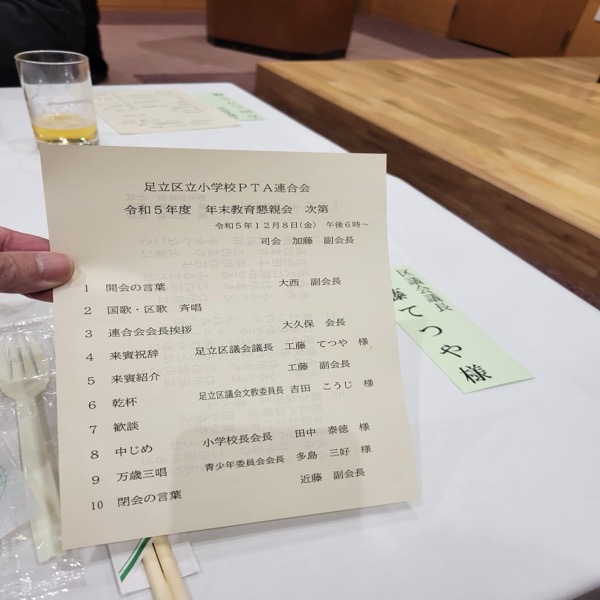 足立区立小学校PTA連合会
令和5年度 年末教育懇親会 次第
令和5年12月8日(金) 午後6時~
司会 加藤 副会長
1 開会の言葉 大西 副会長
2 国歌・区歌 斉唱
3 連合会会長挨拶 大久保 会長
4 来賓祝辞 足立区議会議長 工藤 てつや 様
5 来賓紹介 工藤 副会長
6 乾杯 足立区議会文教委員長 吉田 こうじ 様
7 歓談
8 中じめ 小学校長会長 田中 泰徳 様
9 万歳三唱 青少年委員会会長 多島 三好 様
10 閉会の言葉 近藤 副会長
区議会議長
藤てつや様